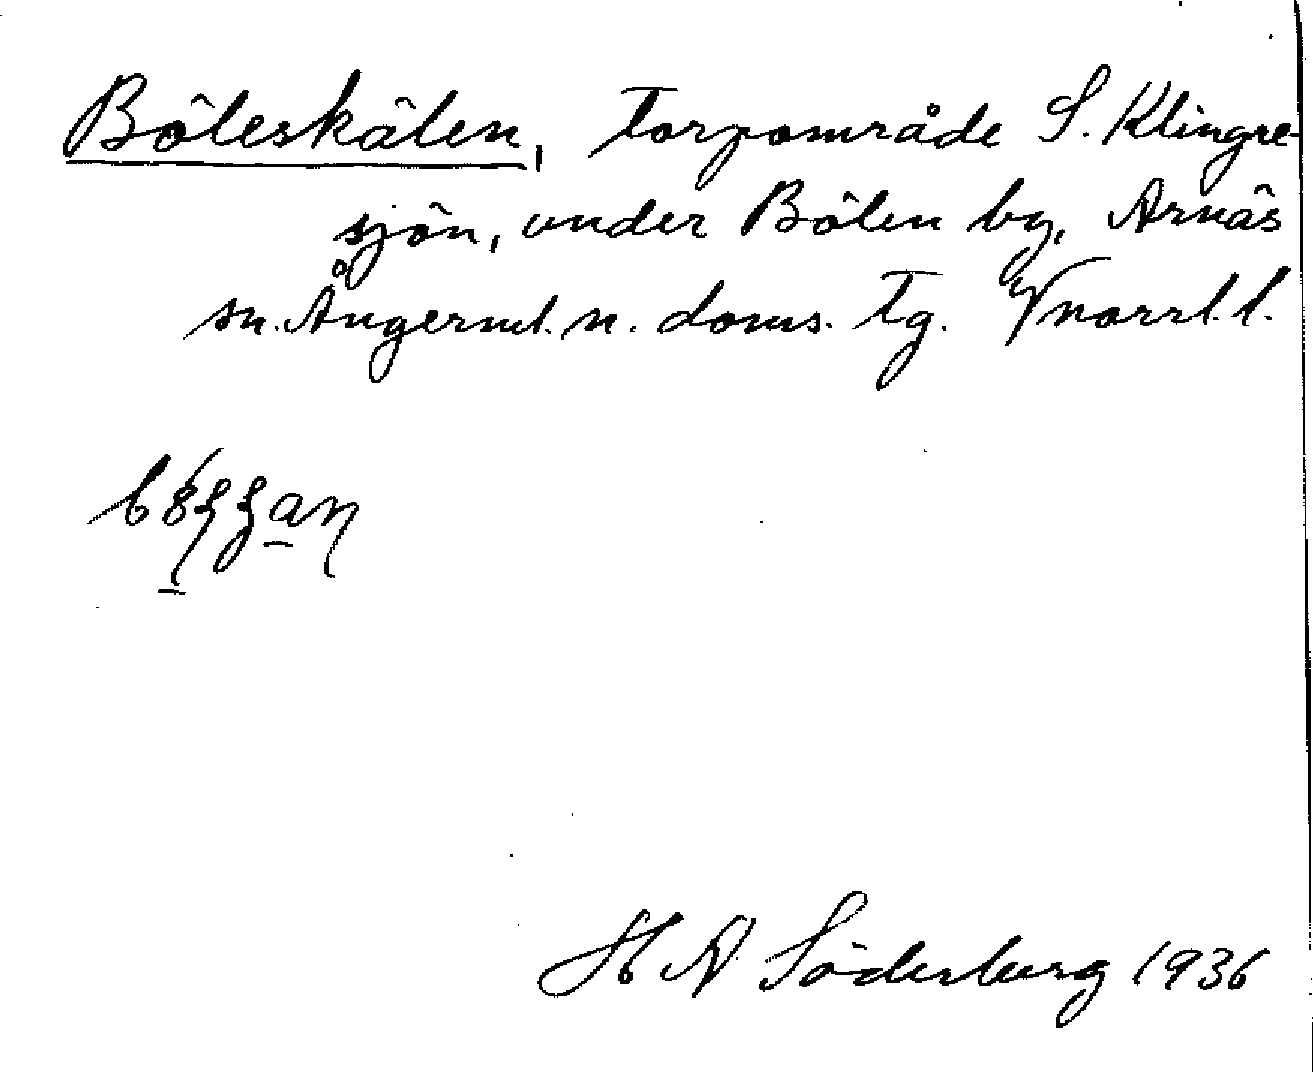 Böleskälen, torpområde S. Klingre-
sjön, under Bölen by, Arnäs
sn. Ångerml. n. doms. tg. Vnorrl. l.
H A Söderberg 1936